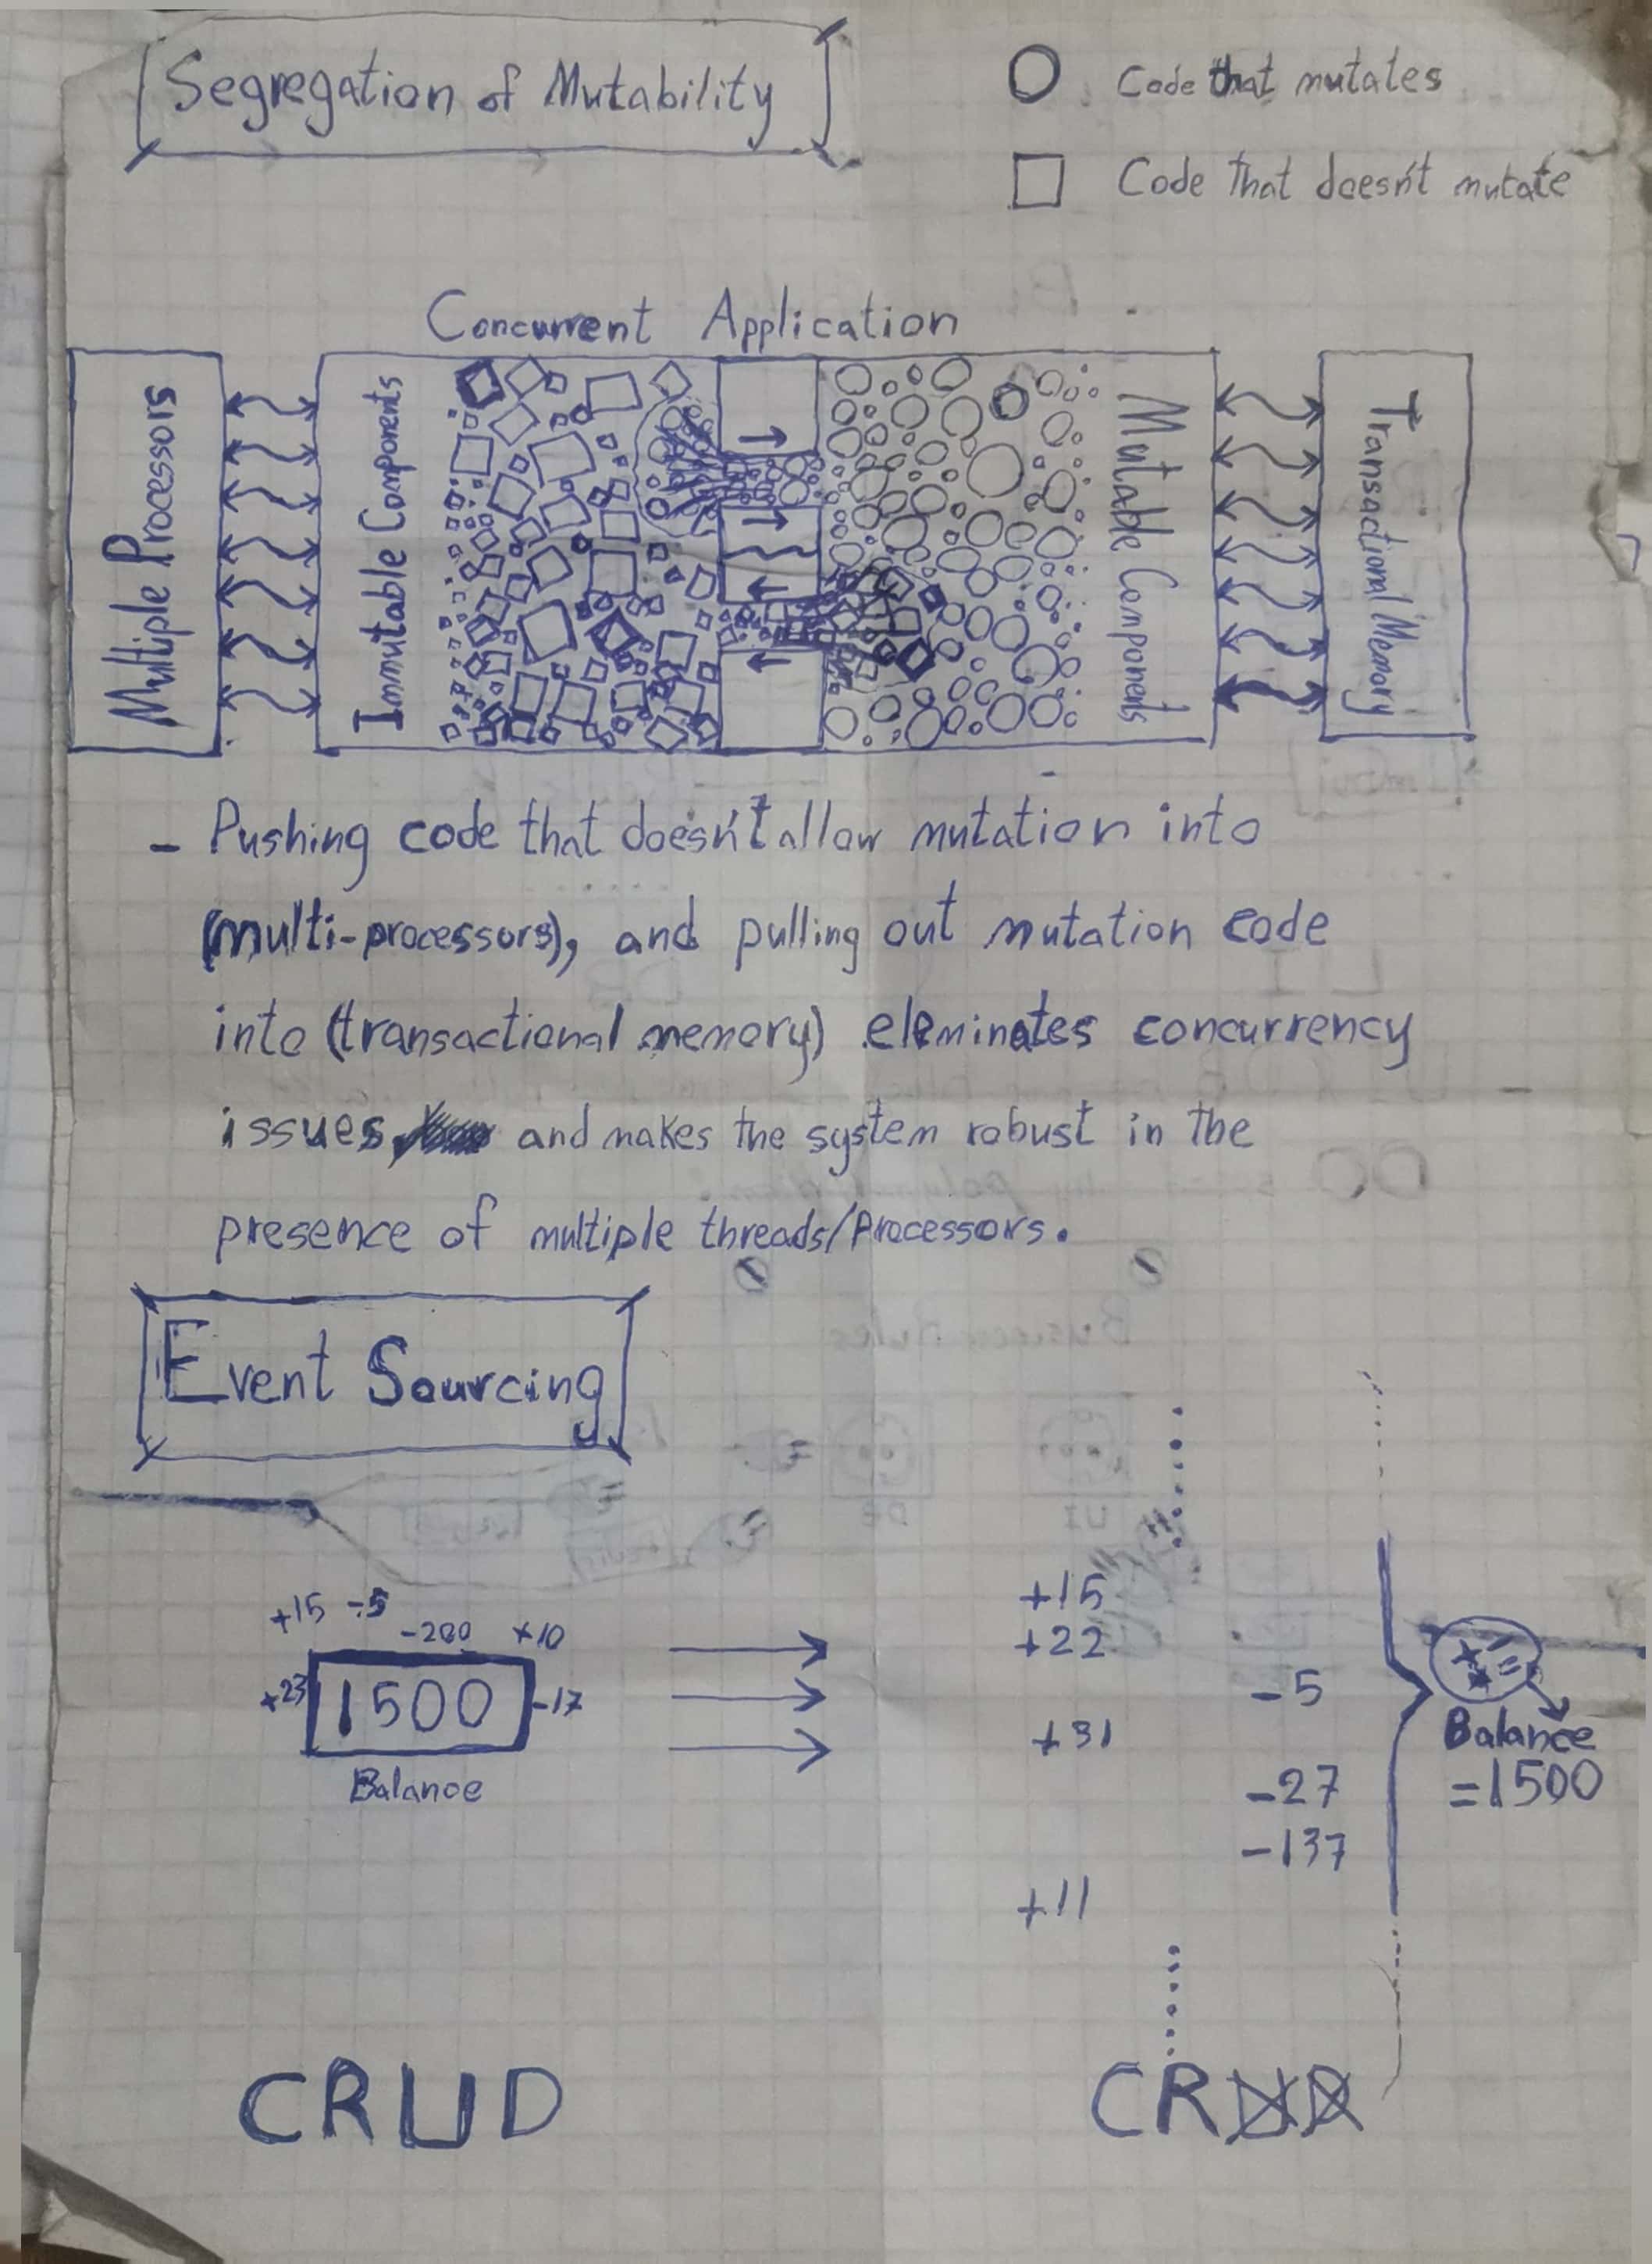 Segregation of Mutability
Code that mutates
Code that doesn't mutate
Concurrent Application
Multiple Processors
Immutable Components
Mutable Components
Transactional Memory
- Pushing code that doesn't allow mutation into
(multi-processors), and pulling out mutation code
into (transactional memory) eleminates concurrency
issues, and makes the system robust in the
presence of multiple threads/Processors.
Event Sourcing
+15 -5
-200 +10
+23 1500 -17
Balance
+15
+22
-5
+31
-27
-137
+11
Balance
=1500
CRUD
CRUD